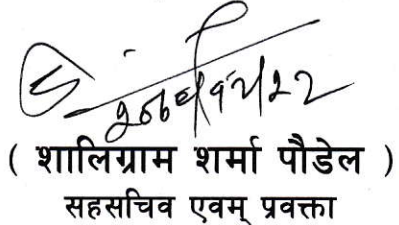 ( शालिग्राम शर्मा पौडेल )
सहसचिव एवम् प्रवक्ता